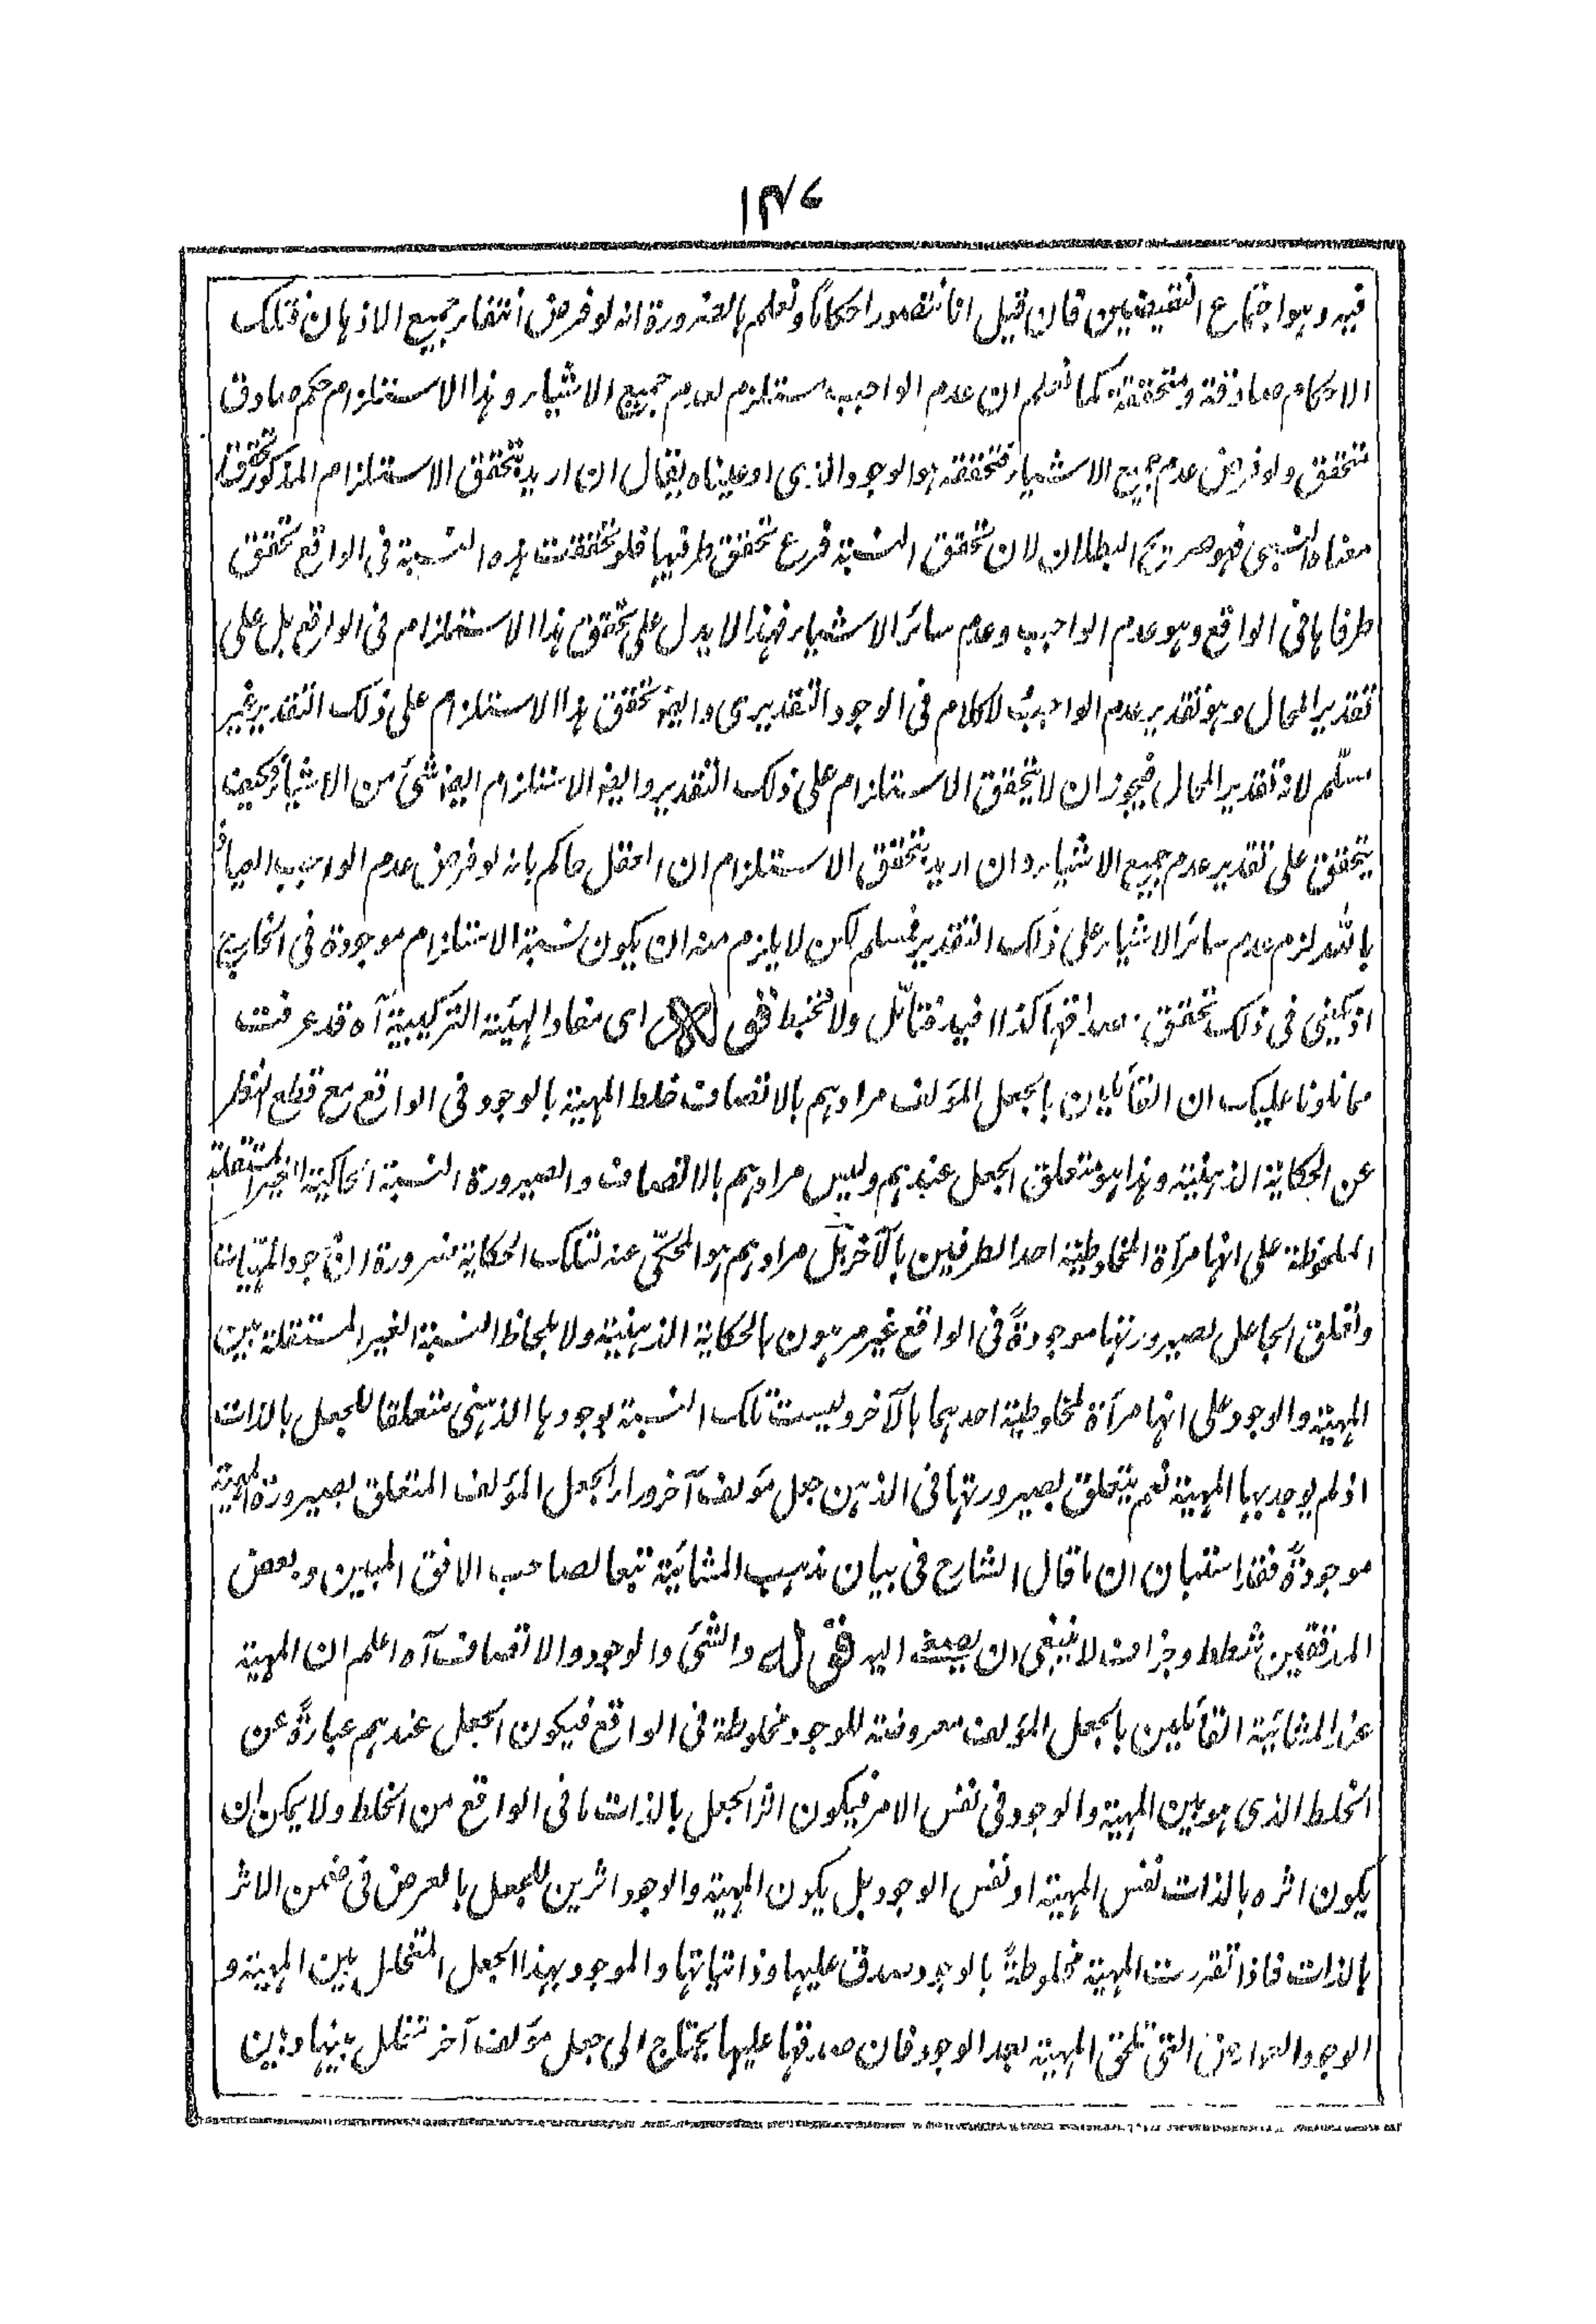 ١٣٧
فيه وهو اجتماع النقيضين فان قيل انا نتصور احكاماً ونعلم بالضرورة انه لو فرض انتفاء جميع الاذهان فتلك
الاحكام صادقة ومتحققة كما نعلم ان عدم الواجب مستلزم لعدم جميع الاشياء وهذا الاستلزام حكم صادق
متحقق ولو فرض عدم جميع الاشياء فتحققه هو الوجود الذى ادعيناه يقال ان اريد بتحقق الاستلزام المذكور تحقق
معناه النسبى فهو صريح البطلان لان تحقق النسبة فرع تحقق طرفيها فلو تحققت هذه النسبة فى الواقع تحقق
طرفاها فى الواقع وهو عدم الواجب وعدم سائر الاشياء فهذا لا يدل على تحقق هذا الاستلزام فى الواقع بل على
تقدير المحال وهو تقدير عدم الواجب ولا كلام فى الوجود التقديرى وايضا تحقق هذا الاستلزام على ذلك التقدير غير
مسلّم لانه تقدير المحال فيجوز ان لا يتحقق الاستلزام على ذلك التقدير وايضا الاستلزام ايضا شئ من الاشياء فكيف
يتحقق على تقدير عدم جميع الاشياء وان اريد بتحقق الاستلزام ان العقل حاكم بانه لو فرض عدم الواجب العياذ
بالله لزم عدم سائر الاشياء على ذلك التقدير فمسلم لكن لا يلزم منه ان يكون نسبة الاستلزام موجودة فى الخارج
اذ يكفى فى ذلك تحقق مصداقها كذا افيد فتأمّل ولا تخبط قوله اى مفاد الهيئة التركيبية آه قد عرفت
مما تلونا عليك ان القائلين بالجعل المؤلف مرادهم بالاتصاف خلط المهية بالوجود فى الواقع مع قطع النظر
عن الحكاية الذهنية وهذا هو متعلق الجعل عندهم وليس مرادهم بالاتصاف والصيرورة النسبة الحاكية الغير المستقلة
الملحوظة على انها مرآة لمخلوطية احد الطرفين بالآخر بل مرادهم هو المحكّى عنه لتلك الحكاية ضرورة ان وجود المهيات
وتعلق الجاعل بصيرورتها موجودةً فى الواقع غير مرهون بالحكاية الذهنية ولا بلحاظ النسبة الغير المستقلة بين
المهية والوجود على انها مرآة لمخلوطية احدهما بالآخر وليست تلك النسبة بوجودها الذهنى متعلقا للجعل بالذات
اذ لم يوجد بها المهية نعم يتعلق بصيرورتها فى الذهن جعل مؤلف آخر وراء الجعل المؤلف المتعلق بصيرورة المهية
موجودةً فقد استبان ان ما قال الشارح فى بيان مذهب المشائية تبعا لصاحب الافق المبين وبعض
المدققين شطط وجزاف لا ينبغى ان يصغى اليه قوله والشئ والوجود والاتصاف آه اعلم ان المهية
عند المشائية القائلين بالجعل المؤلف معروضة للوجود مخلوطة فى الواقع فيكون الجعل عندهم عبارةً عن
الخلط الذى هو بين المهية والوجود فى نفس الامر فيكون اثر الجعل بالذات ما فى الواقع من الخلط ولا يمكن ان
يكون اثره بالذات نفس المهية او نفس الوجود بل يكون المهية والوجود اثرين للجعل بالعرض فى ضمن الاثر
بالذات فاذا تقررت المهية مخلوطةً بالوجود صدق عليها وذاتياتها والموجود بهذا الجعل المتخلل بين المهية و
الوجود والعوارض التى تلحق المهية بعد الوجود فان صدقها عليها يحتاج الى جعل مؤلف آخر تتخلل بينها وبين